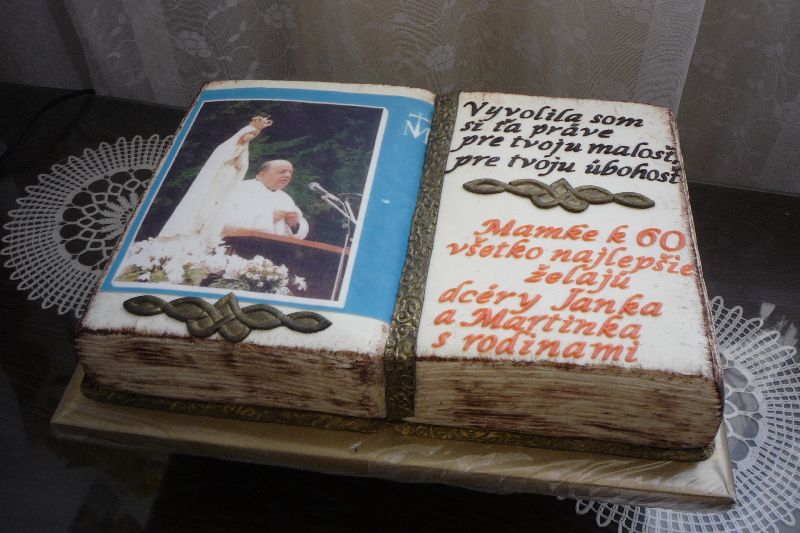 Vyvolila som
si ťa práve
pre tvoju malosť,
pre tvoju úbohosť
Mamke k 60
všetko najlepšie
želajú
dcéry Janka
a Martinka
s rodinami